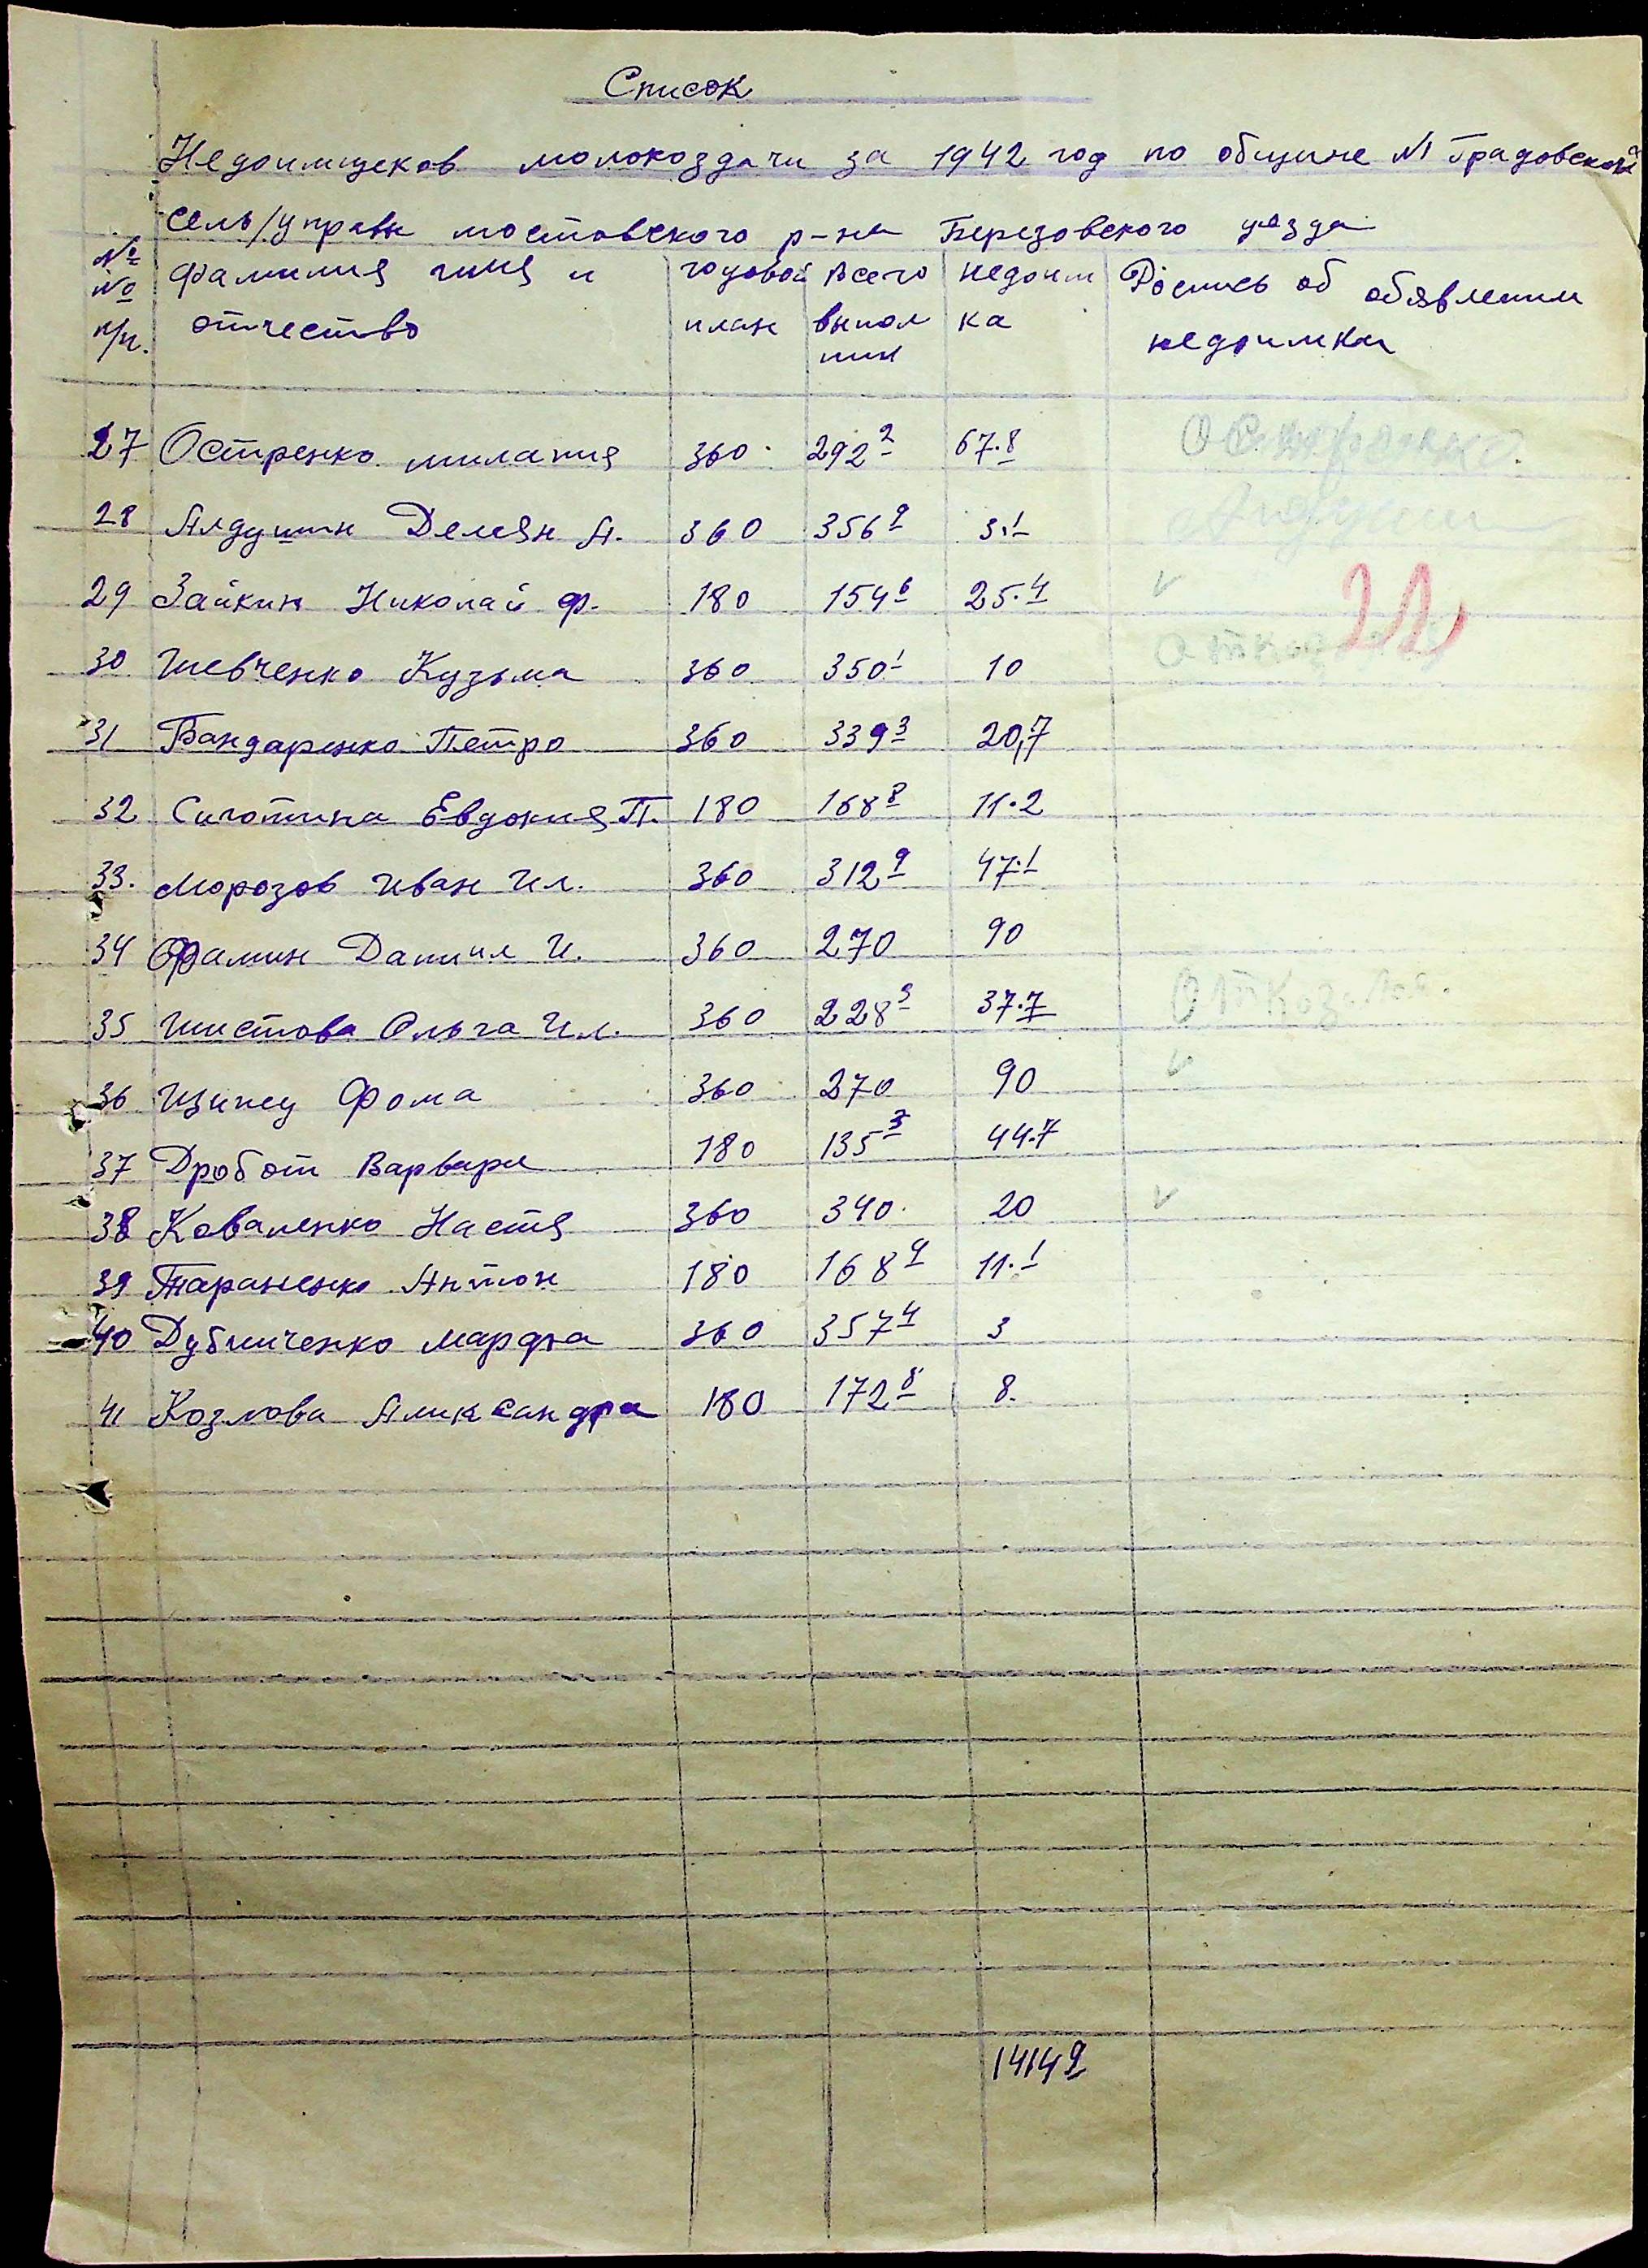 Список
Недоимщеков молокоздачи за 1942 год по общине №1 Градовской
сель/управы мостовского р-на Березовского уезда
№ № п/п. Фамилия имя и отчество | годовой план | всего выпол нин | недоим ка | Роспись об обявлении недоимки
27 Остренко милания 360 292 2 67.8 Остренко.
28 Алдушин Демян А. 360 356 9 3.1
29 Зайкин Николай Ф. 180 154 6 25.4 ✓ 22
30 Шевченко Кузьма 360 350 1 10
31 Бандаренко Петро 360 339 3 20,7
32 Сиротина Евдокия П. 180 168 8 11.2
33. Морозов Иван Ил. 360 312 9 47.1
34 Фамин Даниил И. 360 270 90
35 Шистова Ольга Ил. 360 228 3 37.7 Отказалась.
36 Фома 360 270 90 ✓
37 Дробот Варвара 180 135 3 44.7
38 Коваленко Настя 360 340. 20 ✓
39 Тараненко Антон 180 168 9 11.1
40 Дубинченко марфа 360 357 4 3
41 Козлова Алика сандра 180 172 8 8.
1414 9